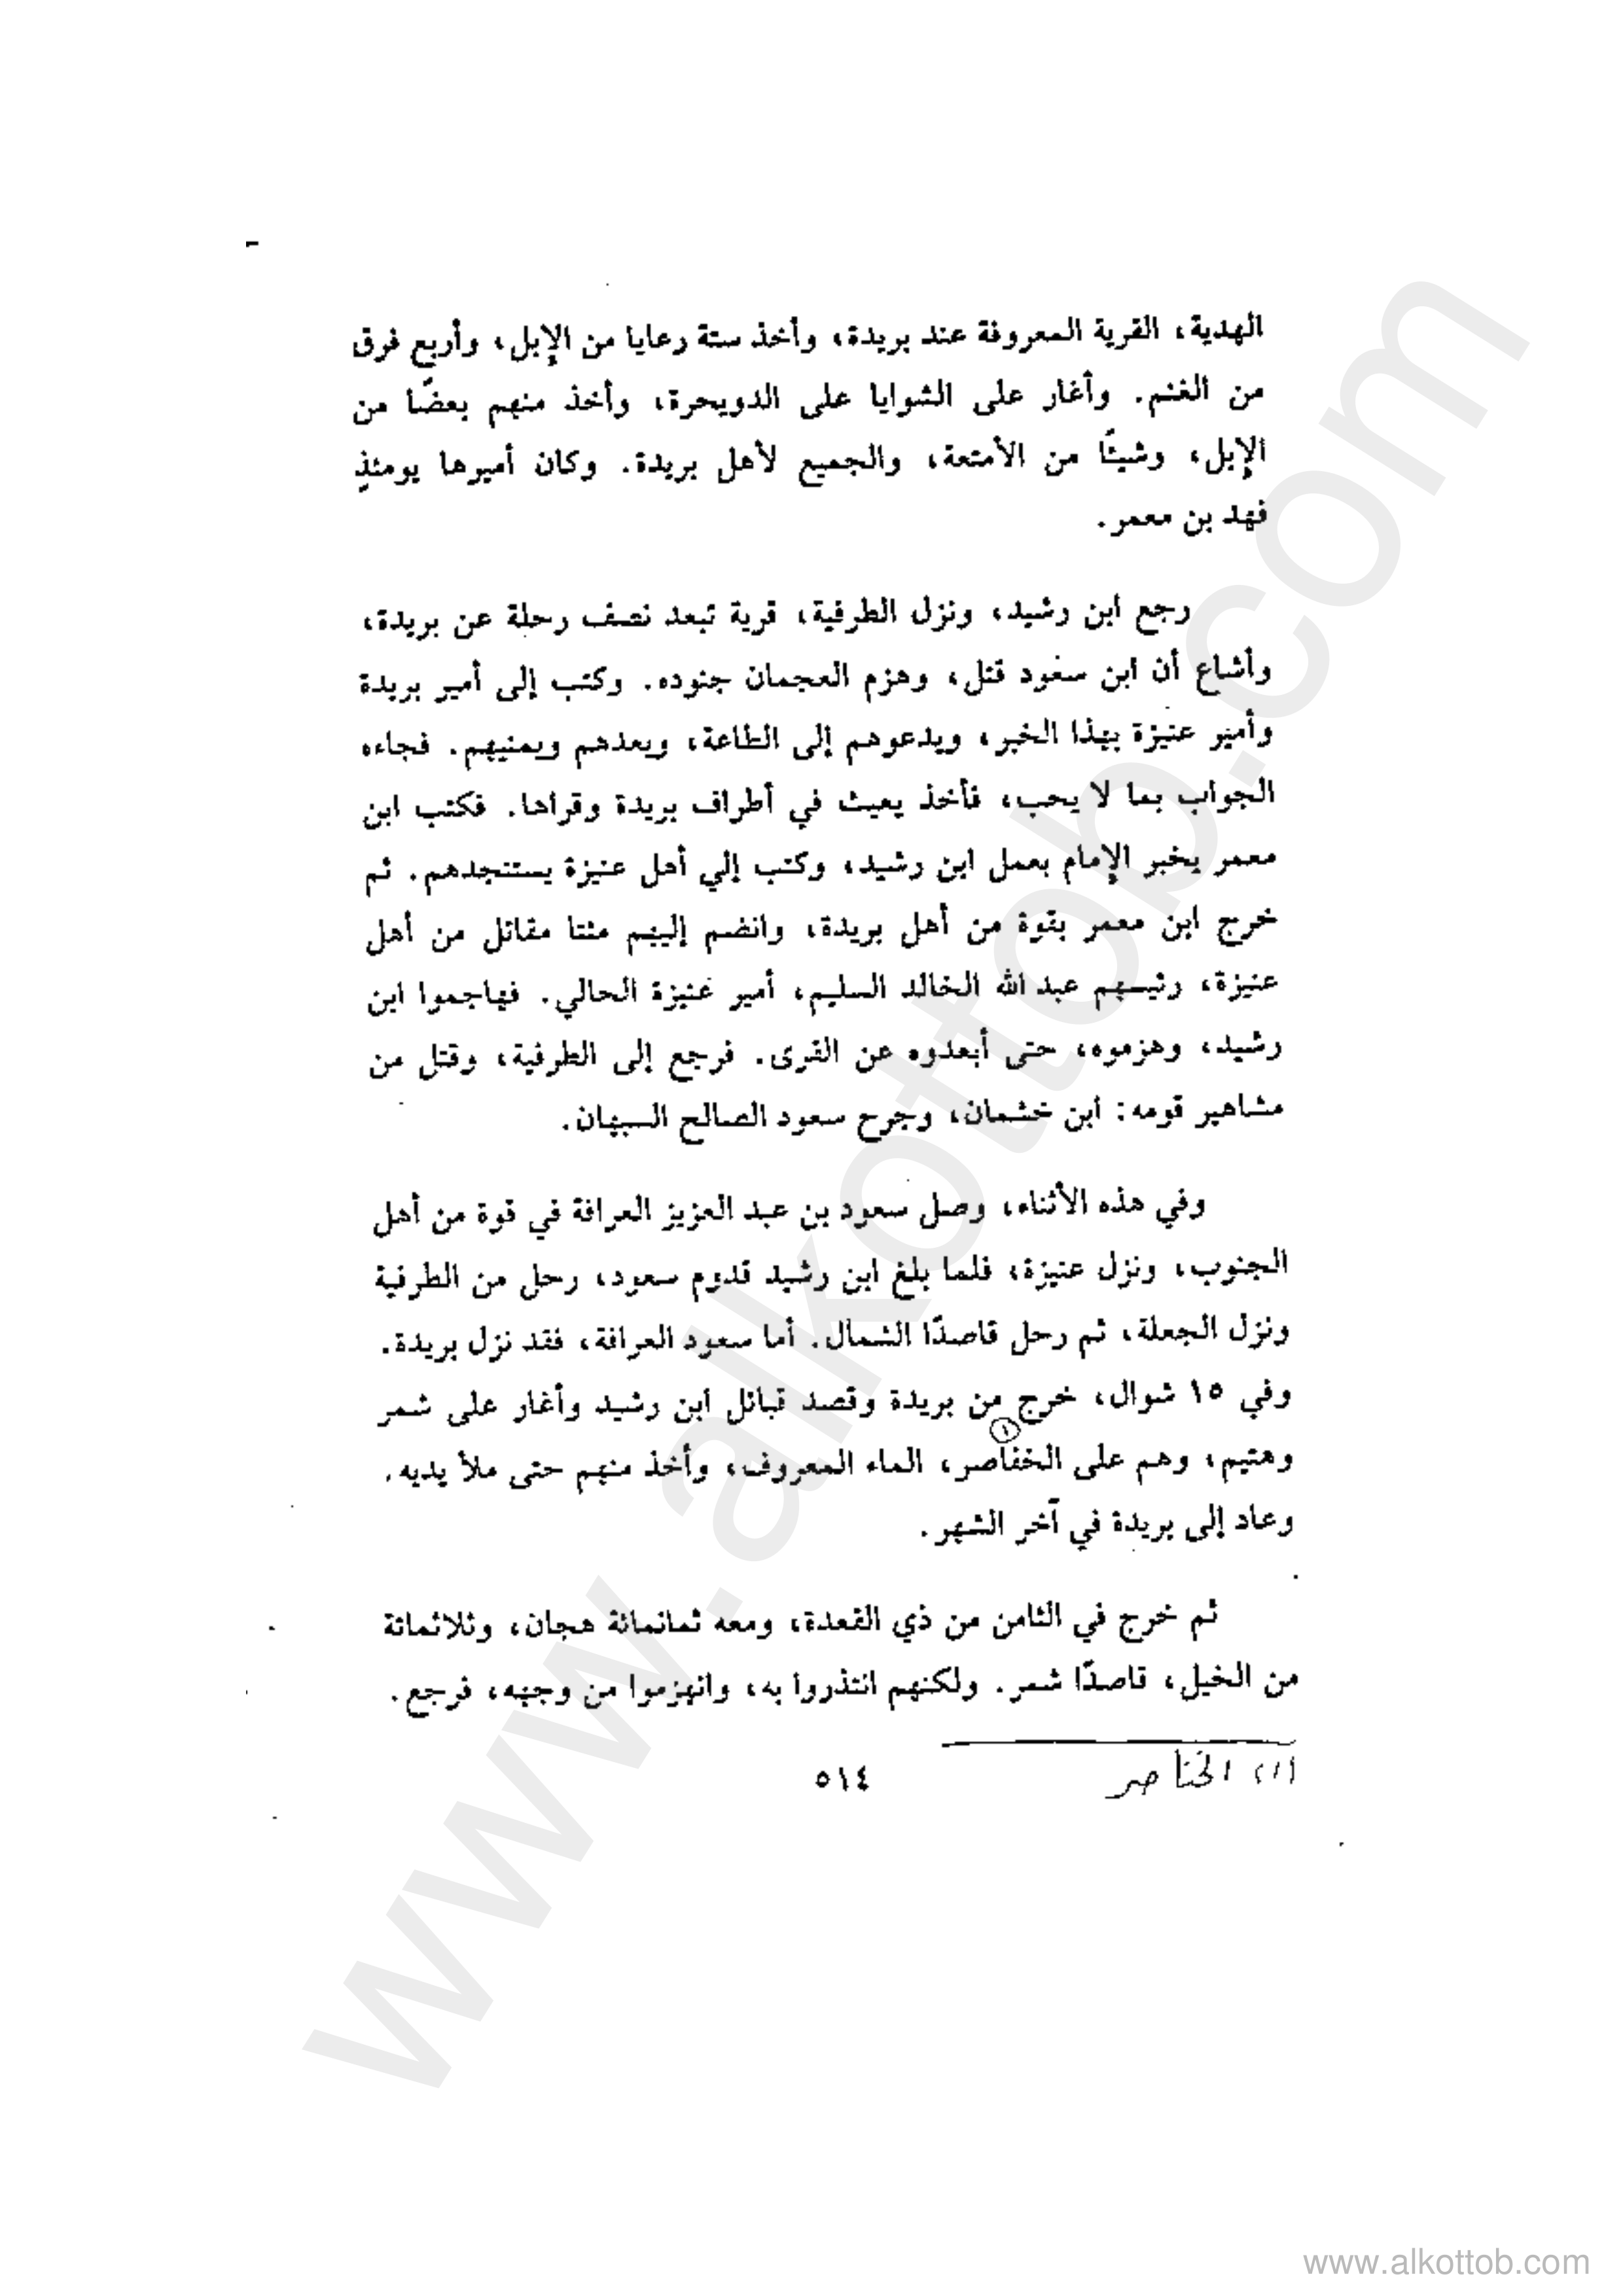 الهدية، القرية المعروفة عند بريدة، وأخذ ستة رعايا من الإبل، وأربع فرق
من الغنم. وأغار على الشوايا على الدويحرة، وأخذ منهم بعضًا من
الإبل، وشيئًا من الأمتعة، والجميع لأهل بريدة. وكان أميرها يومئذٍ
فهد بن معمر.
رجع ابن رشيد، ونزل الطرفية، قرية تبعد نصف رحلة عن بريدة،
وأشاع أن ابن سعود قتل، وهزم العجمان جنوده. وكتب إلى أمير بريدة
وأمير عنيزة بهذا الخبر، ويدعوهم إلى الطاعة، ويعدهم ويمنيهم. فجاءه
الجواب بما لا يحب، فأخذ يعيث في أطراف بريدة وقراها. فكتب ابن
معمر يخبر الإمام بعمل ابن رشيد، وكتب إلي أهل عنيزة يستنجدهم. ثم
خرج ابن معمر بقوة من أهل بريدة، وانضم إليهم مئتا مقاتل من أهل
عنيزة، رئيسهم عبد الله الخالد السليم، أمير عنيزة الحالي. فهاجموا ابن
رشيد، وهزموه، حتى أبعدوه عن القرى. فرجع إلى الطرفية، وقتل من
مشاهير قومه: ابن خشمان، وجرح سعود الصالح السبهان.
وفي هذه الأثناء، وصل سعود بن عبد العزيز العرافة في قوة من أهل
الجنوب، ونزل عنيزة، فلما بلغ ابن رشيد قدوم سعود، رحل من الطرفية
ونزل الجعلة، ثم رحل قاصدًا الشمال. أما سعود العرافة، فقد نزل بريدة.
وفي ١٥ شوال، خرج من بريدة وقصد قبائل ابن رشيد وأغار على شمر
وهتيم، وهم على الخفاصر، (١) الماء المعروف، وأخذ منهم حتى ملأ يديه.
وعاد إلى بريدة في آخر الشهر.
ثم خرج في الثامن من ذي القعدة، ومعه ثمانمائة هجان، وثلاثمائة
من الخيل، قاصدًا شمر. ولكنهم انتذروا به، وانهزموا من وجهه، فرجع.
(١) الخناصر
٥١٤
www.alkottob.com
www.alkottob.com